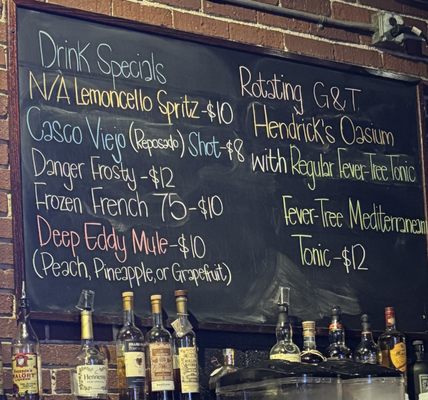 Drink Specials
N/A Lemoncello Spritz-$10
Casco Viejo (Reposado) Shot-$8
Danger Frosty-$12
Frozen French 75-$10
Deep Eddy Mule-$10
(Peach, Pineapple, or Grapefruit)
Rotating G&T
Hendrick's Oasium
with Regular Fever-Tree Tonic
Fever-Tree Mediterranean
Tonic-$12
Hennessy
MALORT